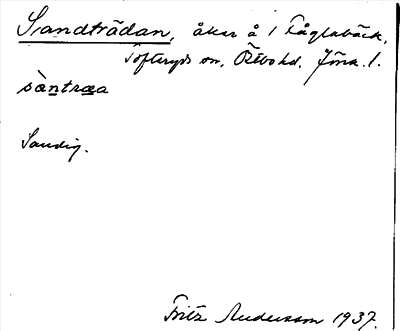 Sandträdan, åker å 1 Fåglabäck,
Tofteryds sn, Östbo hd. Jönk. l.
sàntræa
Sandig.
Fritz Andersson 1937.